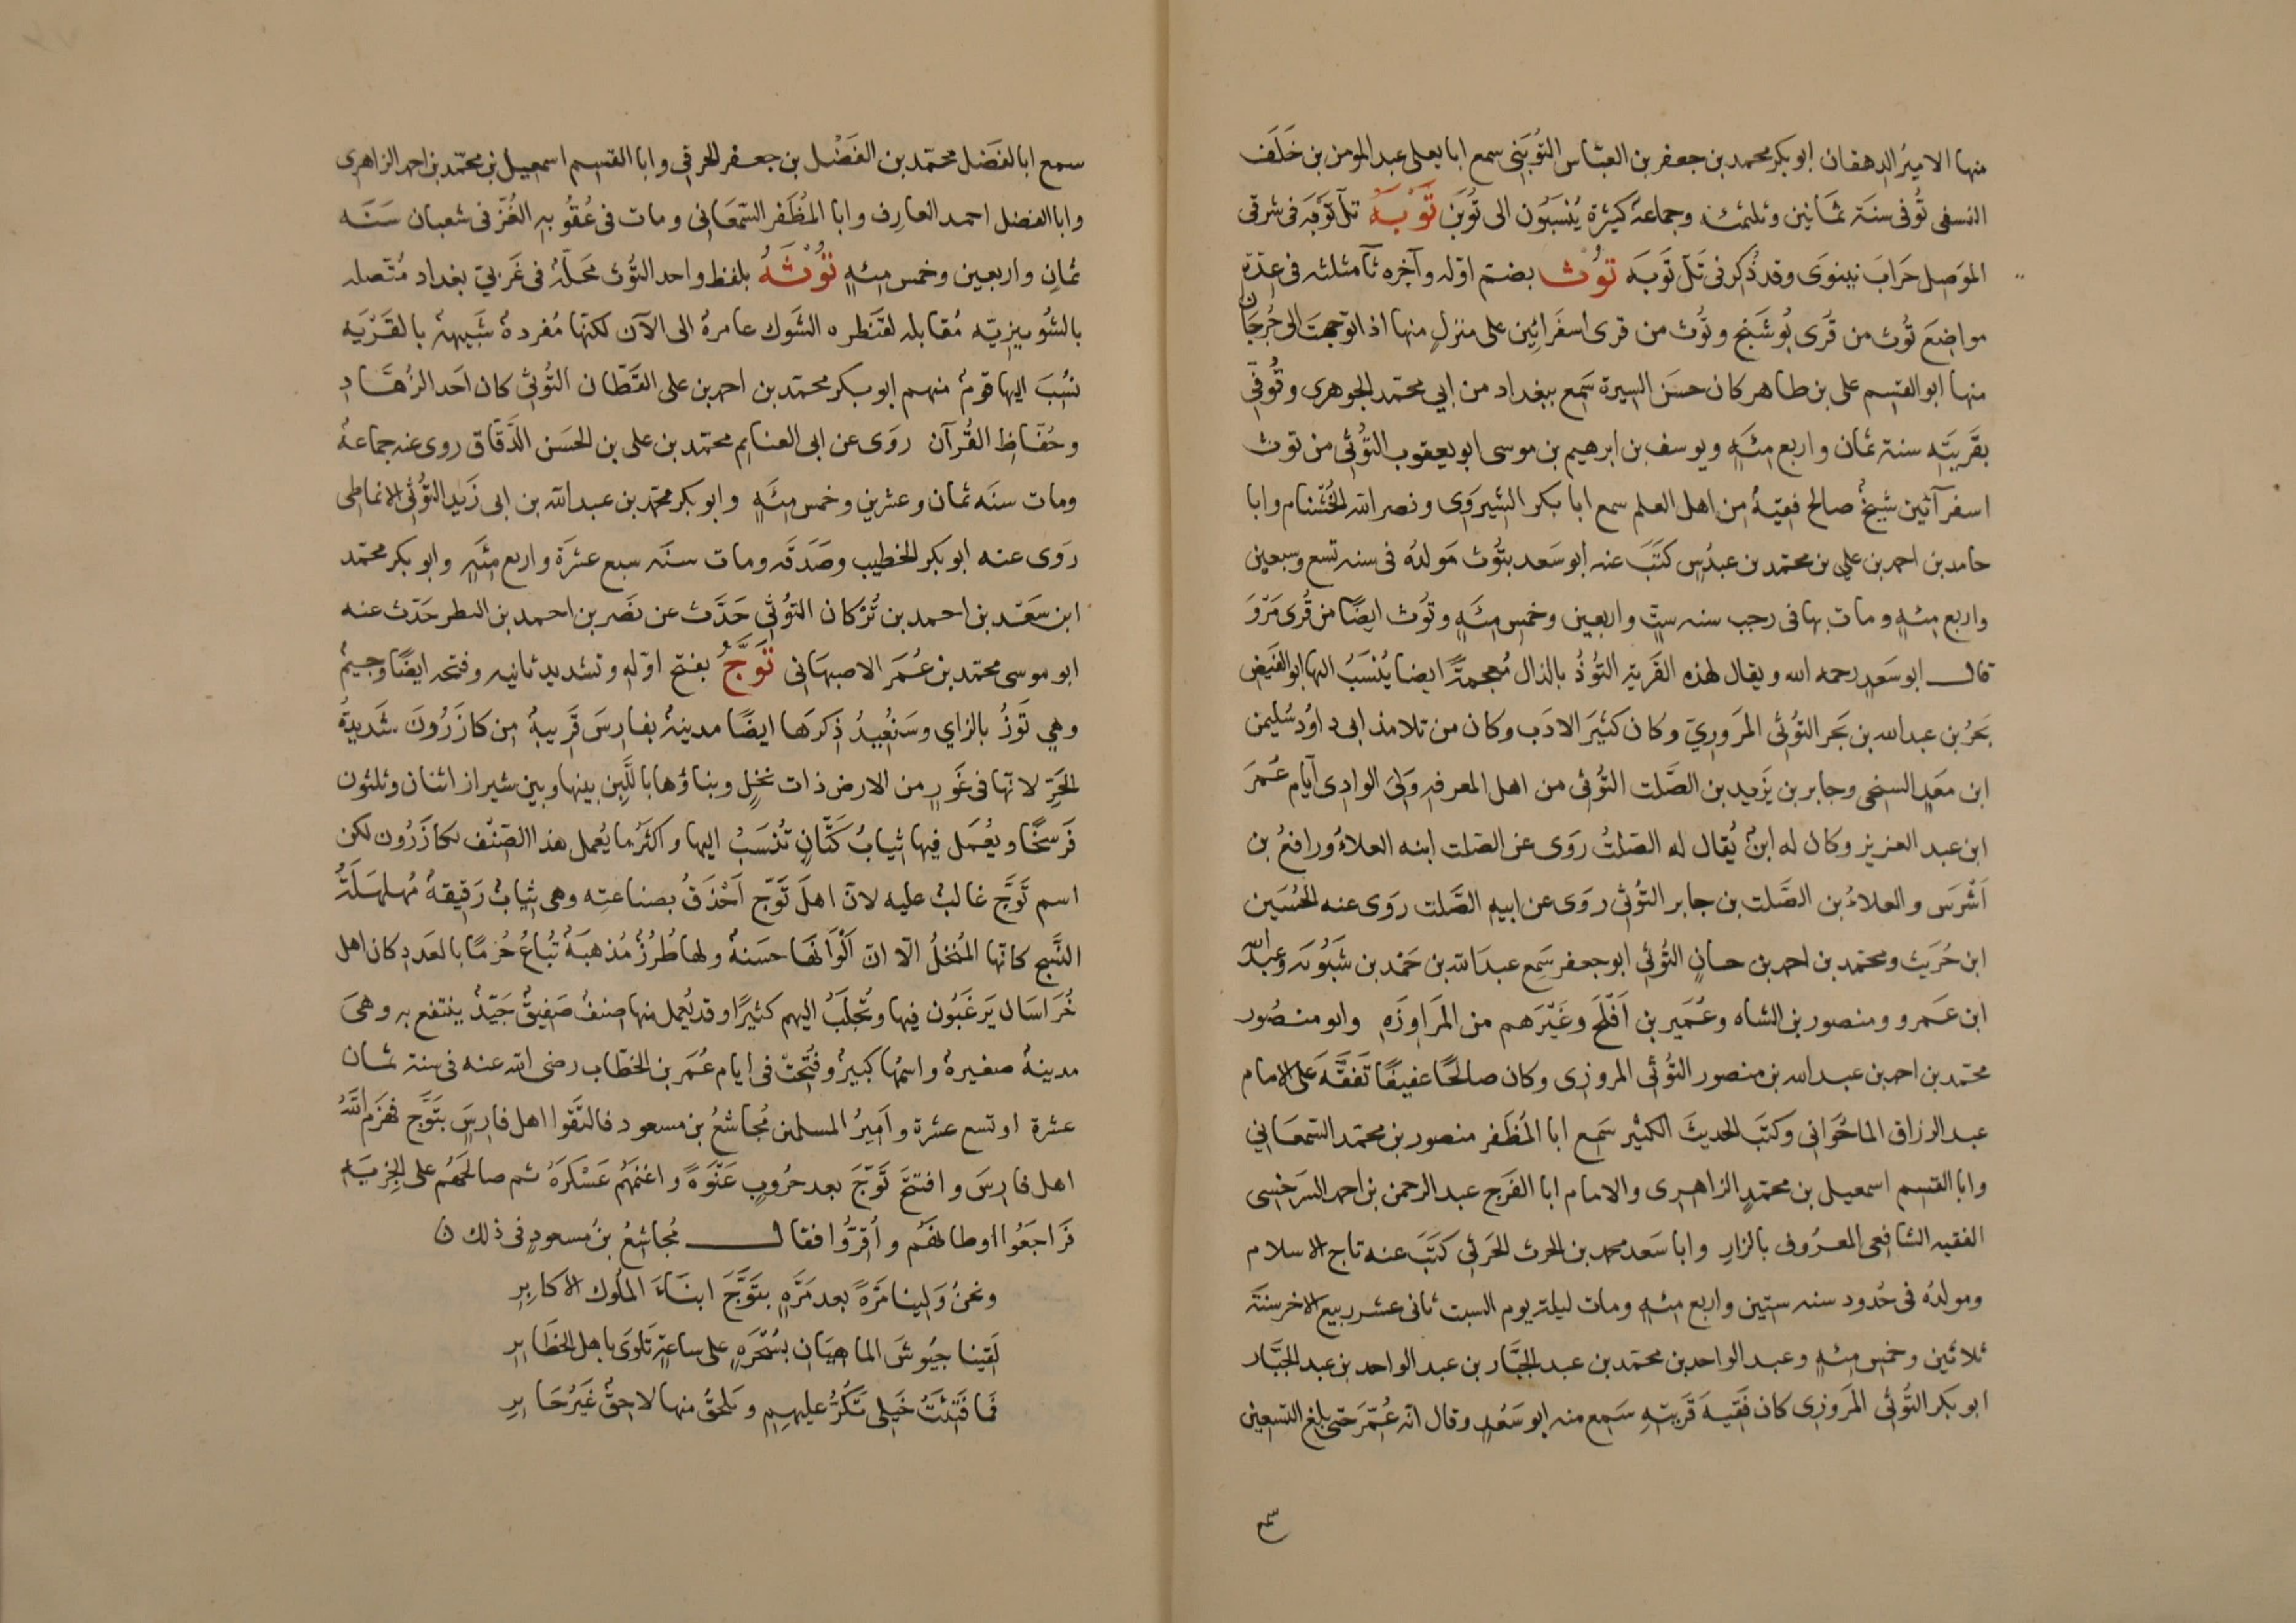 منها الامير الدهقان ابو بكر محمد بن جعفر بن العباس التُوبَنى سمع ابا يعلى عبد المومن بن خَلَف
النسفى تُوفى سنة ثمانين وثلثمئة وجماعة كثيرة يُنسَبُون الى تُوبَن تَوْبَةُ تلّ تَوْبَه فى شرقى
الموَصِل خرابَ نينوَى وقد ذُكر فى تَلّ تَوبَه تُوث بضم اوّله وآخره ثآ مثلثه فى عِدّةِ
مواضِعَ تُوث من قُرى بُوشَنج وتُوث من قرى اسفَرائين على منزلٍ منها اذا توجهتَ الى جُرجَان
منها ابو القسِم على بن طاهر كان حسَن السيرة سَمع ببغداد من ابي محمّد الجوهرى وتُوفّى
بقَريَتِه سنة ثمان واربع مِئَةٍ ويوسف بن ابرهيم بن موسى ابو يعقوب التُوثى من توث
اسفرآئين شيخٌ صالح فقيهٌ من اهل العلم سمع ابا بكر الشيروى ونصر الله الخُشنام وابا
حامد بن احمد بن علي بن محمّد بن عبدُس كَتَبَ عنه ابو سَعد بتُوث مَولدُه فى سنه تسع وسبعين
واربع مِئةٍ ومات بها فى رجب سنه ستٍّ واربعين وخمس مِئةٍ وتُوث ايضًا من قُرى مَروَ
قال ابو سَعدٍ رحمه الله ويقال لهذه القَرية التُوذُ بالذال مُعجمةً ايضا يُنسَبُ اليها ابو الفَيض
بَحرُ بن عبد الله بن بَحر التُوثى المروَرِيّ وكان كثيرَ الادَب وكان من تلامذ ابى داوُد سُليمن
ابن مَعبد السنجى وجابر بن يَزيد بن الصَّلت التُوثى من اهل المعرفه وَلىَ الوادى آيام عُمَرَ
ابن عبد العزيز وكان له ابنٌ يُقال له الصَلتُ روَى عن الصَلت ابنه العلاءُ ورافعُ بن
اَشْرَس والعلاءُ بن الصَّلت بن جابر التُوثى روَى عن ابيه الصَّلت روَى عنه الحُسَين
ابن حُرَيث ومحمّد بن احمد بن حسانٍ التُوثي ابو جعفر سَمِع عبدَ الله بن حَمد بن شَبُوَيَه وعبدَ الله
ابن عَمرو ومنصور بن الشاه وعُمَير بن اَفْلَحَ وغَيْرَهم من المرَاوِزَةِ وابو منصُور
محمّد بن احمد بن عبد الله بن منصور التُوثى المروزى وكان صالحًا عفيفًا تَفقَّهَ على الامام
عبد الرزاق الماخُوَانى وكتَب الحديثَ الكثير سَمع ابا المُظَفر منصور بن محمّد السَمعَاني
وابا القسِم اسمعيل بن محمّدٍ الزاهِرى والامام ابا الفَرج عبد الرحمن بن احمد السَرخسى
الفقيه الشافعى المعروف بالزاز وابا سَعد محمد بن الحرث الحَرثي كَتَبَ عنه تاج الاسلام
ومولدُه فى حُدود سنه ستين واربع مئةٍ ومات ليلة يوم السبت ثانى عشر ربيع الاخر سنة
ثلاثين وخمس مئةٍ وعبد الواحد بن محمّد بن عبد الجبَّار بن عبد الواحد بن عبد الجَبَّار
ابو بكر التُوثى المَروَزى كان فَقِيهَ قَريتِهِ سَمِع منه ابو سَعْدٍ وقال انه عُمّر حتى بلغ التسعين
سمع
سمع ابا الفَضل محمّد بن الفَضْل بن جعفر الخرقى وابا القسِم اسمعيل بن محمّد بن احمد الزاهرى
وابا الفضل احمد العارِف وابا المُظَفر السّمعَانى ومات فى عُقُوبةِ الغُزّ فى شعبان سَنَه
ثمانٍ واربعين وخمس مِئةٍ تُوْثَةُ بلفظ واحد التُوث محَلّةٌ فى غَربيّ بغداد مُتّصله
بالشُونيزِيّه مُقابله لقنَطره الشَوك عامرة الى الآن لكنّها مُفردةٌ شَبيهة بالقَرْيَه
نُسِبَ اليها قومٌ منهم ابو بكر محمّد بن احمد بن على القَطّان التُوثى كان اَحَد الزُهّاد
وحُفّاظ القُرآن روَى عن ابى الغنايم محمّد بن على بن الحسَن الدَّقّاق روى عنه جماعةٌ
ومات سنَه ثمان وعشرين وخمس مِئَةٍ وابو بكر محمّد بن عبد الله بن ابى زَيد التُوثى الانماطى
روَى عنه ابو بكر الخطيب وصَدَقَه ومات سنَه سبع عشرَة واربع مئَةٍ وابو بكر محمّد
ابن سَعَد بن احمد بن تُرْكان التوُثى حَدَّث عن نَصَر بن احمد بن البطر حَدّث عنه
ابو موسى محمّد بن عُمَرَ الاصبهَانى تَوَّجُ بفتح اوّله وتشديد ثانيه وفتحه ايضًا وجيمٌ
وهى تَوَّزُ بالزاي وسَنُعِيدُ ذِكرَها ايضًا مدينةٌ بفارِسَ قَريبةٌ من كازَرُونَ شَديدةُ
الحَرِّ لانّها فى غَورٍ من الارض ذات نخيلٍ وبناؤها باللَّبِن بينها وبين شيراز اثنان وثلثون
فَرسخًا ويُعمَل فيها ثيابُ كَتّانٍ تُنسَبُ اليها واكثَرُ ما يُعمل هذا الصّنف بكازَرُون لكن
اسم تَوَّجَ غالبٌ عليه لانّ اهلَ تَوّج اَحْذَقُ بصناعتِه وهى ثيابٌ رَقيقةٌ مُهلهَلَةُ
النَّسج كانّها المُنخلُ الّا انّ اَلْوَانَها حسَنةٌ ولها طُرُزٌ مُذهبَةٌ تُباعُ حُزمًا بالعَددِ كان اهل
خُرَاسَان يَرغَبُون فيها وتُجلَبُ اليهم كثيرًا وقد يُعمل منها صنفٌ صَفيقٌ جَيّدٌ ينتفع به وهىَ
مدينةٌ صغيرةٌ واسمُها كبيرٌ وفُتِحتْ فى ايام عُمَر بن الخطّاب رضى الله عنه فى سنة ثمان
عشرة او تسع عشرة واَمِيرُ المسلمين مُجاشعُ بن مسعود فالتَقوا اهل فارِسَ بتَوَّج فهزَم اللهُ
اهل فارِسَ وافتتحَ تَوَّجَ بعد حرُوبٍ عَنْوَةً واغنمهُم عَسْكَرَهُ ثم صالحَهُم على الجِزيَةِ
فرَاجَعُوا اوطانهُم واُقِرُّوا فقال مُجاشعُ بن مسعودٍ فى ذلك ن
ونحنُ وَلينا مَرّةً بعد مَرّةٍ بتَوَّجَ ابنَاءَ الملُوك الاكابِرِ
لقينا جيُوشَ الماهيَان بسُحْرَةٍ على ساعةٍ تَلوَى باهل الحظَايرِ
فما فَتِئتْ خَيلى تَكُرُّ عليهِمِ ويَلحقُ منها لاحِقٌ غَيرُ حَايرِ